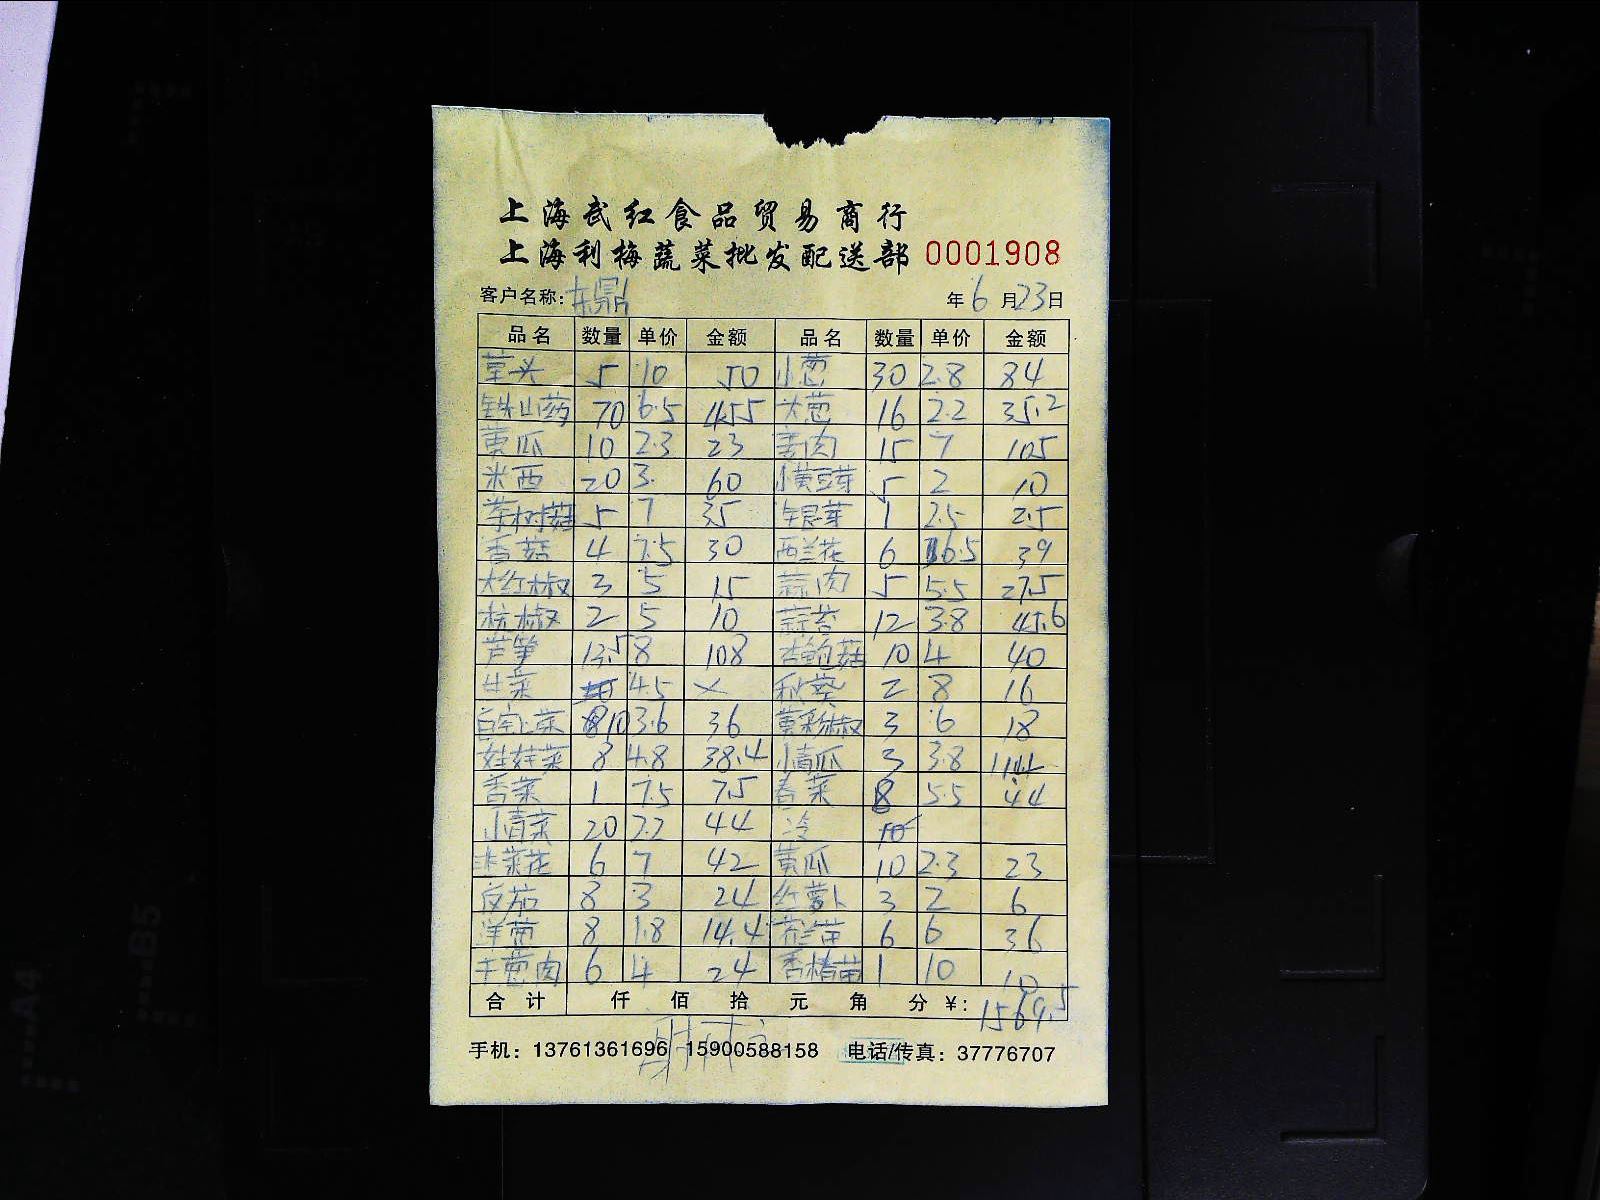 上海武红食品贸易商行
上海利梅蔬菜批发配送部 0001908
客户名称: 东鼎 年 6 月 23 日
品名 数量 单价 金额 品名 数量 单价 金额
草头 5 10 50 小葱 30 2.8 84
铁山药 70 6.5 455 大葱 16 2.2 35.2
黄瓜 10 2.3 23 姜肉 15 7 105
米西 20 3. 60 小黄豆芽 5 2 10
茶树菇 5 7 35 银芽 1 2.5 2.5
香菇 4 7.5 30 西兰花 6 6.5 39
大红椒 3 5 15 蒜肉 5 5.5 27.5
杭椒 2 5 10 蒜苔 12 3.8 45.6
芦笋 13.5 8 108 杏鲍菇 10 4 40
生菜 4.5 × 秋葵 2 8 16
白宝菜 10 3.6 36 黄彩椒 3 6 18
娃娃菜 8 4.8 38.4 小青瓜 3 3.8 11.4
香菜 1 7.5 7.5 春菜 8 5.5 44
小青菜 20 2.2 44 冷
韭菜花 6 7 42 黄瓜 10 2.3 23
反茄 8 3 24 红萝卜 3 2 6
洋葱 8 1.8 14.4 芥兰苗 6 6 36
牛葱肉 6 4 24 香椿苗 1 10 10
合计 仟 佰 拾 元 角 分 ¥: 1569.5
手机: 13761361696 15900588158 电话/传真: 37776707